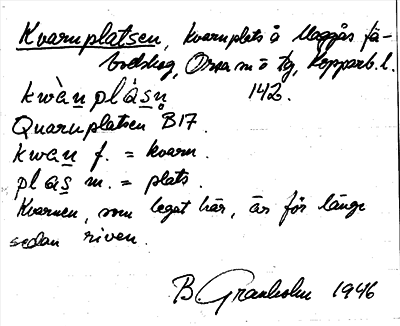 Kvarnplatsen, kvarnplats å Maggås fä-
bodskog, Orsa sn ö tg, Kopparb. l.
kwàn̲plàs̲n̥ 142.
Quarnplatsen B17.
kwan̲ f. = kvarn.
plas̲ m. = plats.
Kvarnen, som legat här, är för länge
sedan riven.
B Granholm 1946